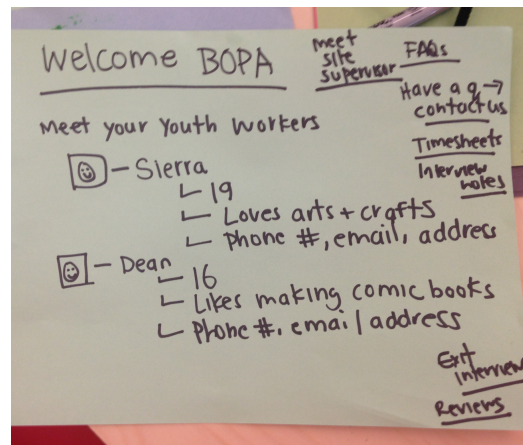 Welcome BOPA
meet
site
supervisor
FAQs
Have a q →
contact us
Timesheets
Interview
notes
Meet your Youth Workers
- Sierra
19
Loves arts + crafts
Phone #, email, address
- Dean
16
Likes making comic books
Phone #, email address
Exit
interview
Reviews